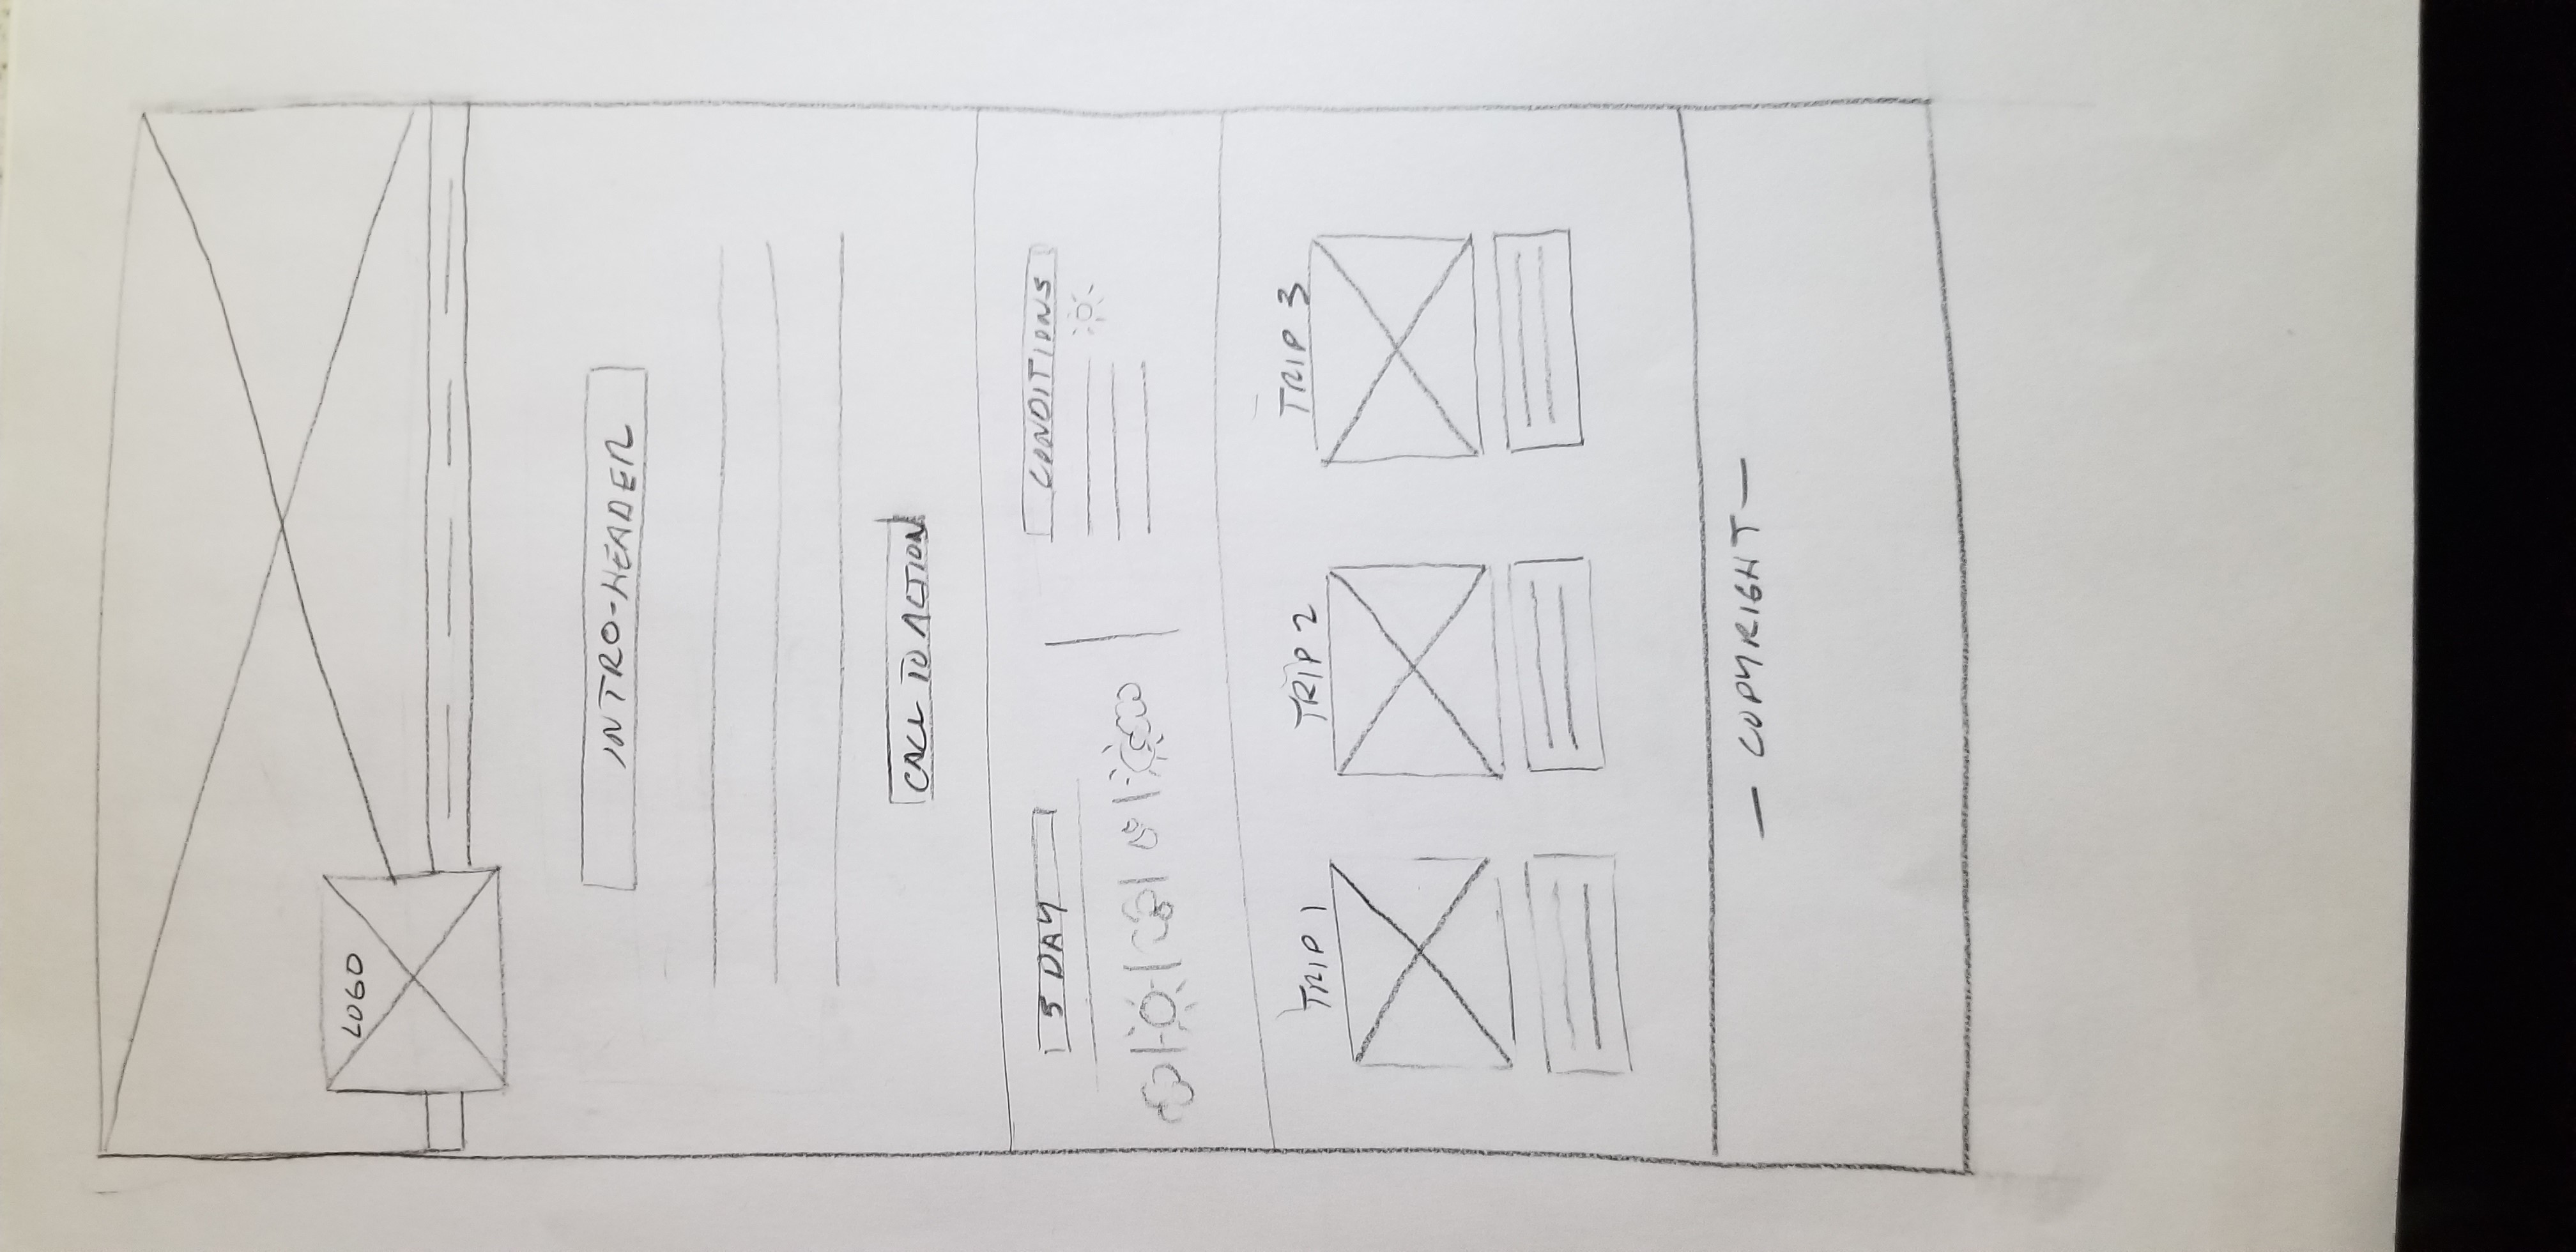 LOGO
INTRO-HEADER
CALL TO ACTION
5 DAY
CONDITIONS
TRIP 1
TRIP 2
TRIP 3
— COPYRIGHT —